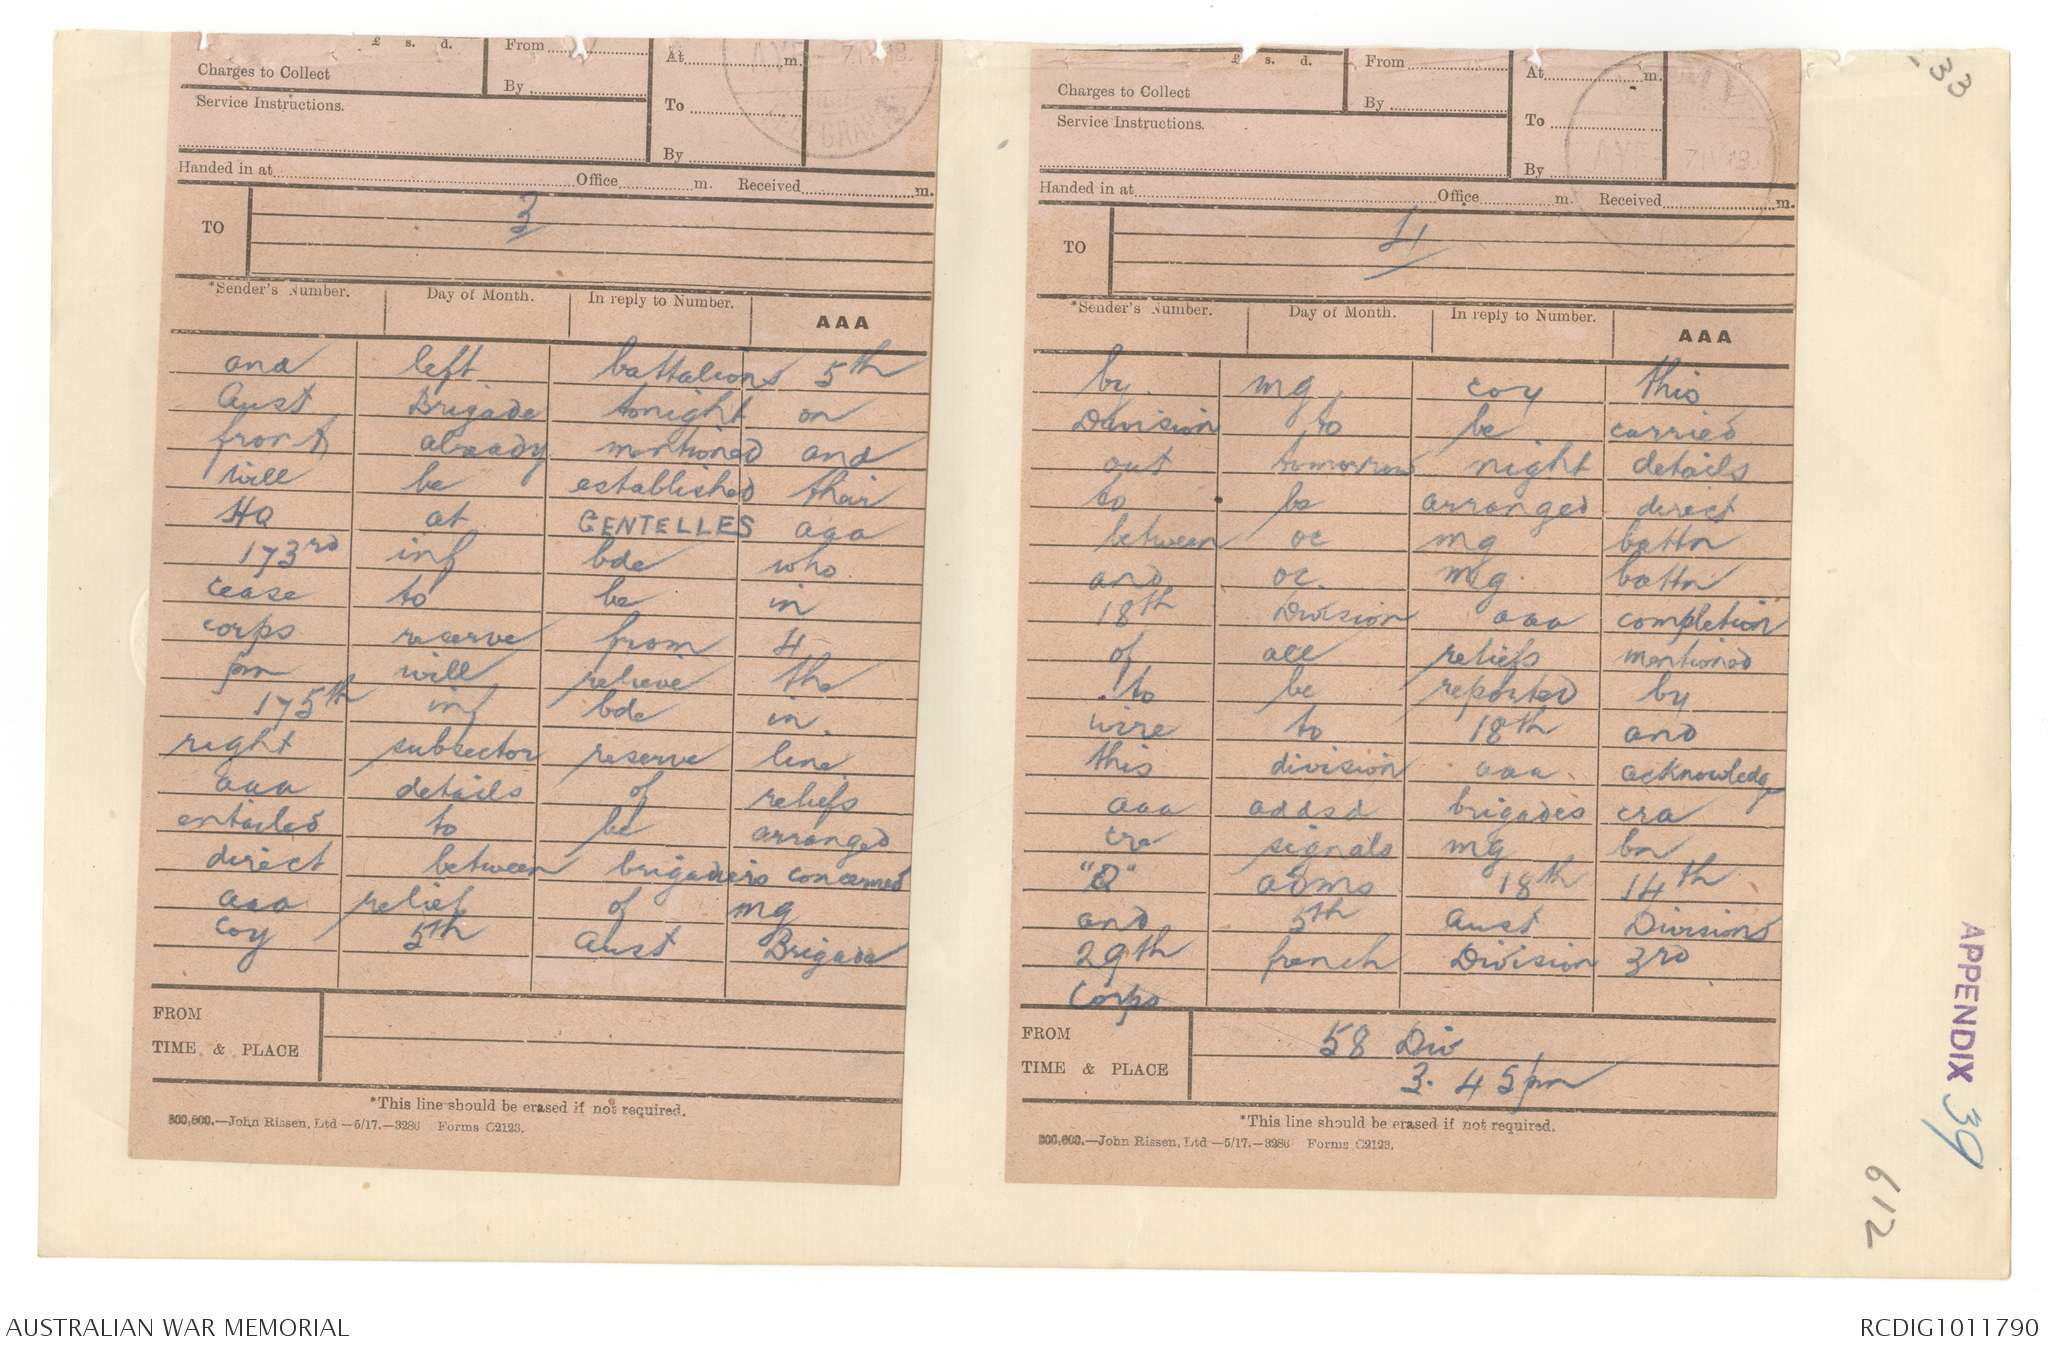 £ s. d.
Charges to Collect
Service Instructions.
From
By
At m.
To
By
7.IV.18.
TELEGRAPHS
Handed in at Office m. Received m.
TO
3
*Sender's Number. Day of Month. In reply to Number. AAA
and left battalions 5th
Aust Brigade tonight on
front already mentioned and
will be established their
HQ at GENTELLES aaa
173rd inf bde who
cease to be in
corps reserve from 4
pm will relieve the
175th inf bde in
right subsector reserve line
aaa details of reliefs
entailed to be arranged
direct between brigadiers concerned
aaa relief of mg
coy 5th Aust Brigade
FROM
TIME & PLACE
*This line should be erased if not required.
300,000.—John Rissen, Ltd —5/17.—3286 Forms C2123.
£ s. d.
Charges to Collect
Service Instructions.
From
By
At m.
To
By
7.IV.18.
Handed in at Office m. Received m.
TO
4
*Sender's Number. Day of Month. In reply to Number. AAA
by mg coy this
Division to be carried
out tomorrow night details
to be arranged direct
between oc mg battn
and oc mg battn
18th Division aaa completion
of all reliefs mentioned
to be reported by
wire to 18th and
this division aaa acknowledg
aaa addsd brigades cra
cre signals mg bn
"Q" adms 18th 14th
and 5th Aust Divisions
29th french Division 3rd
Corps
FROM
TIME & PLACE
58 Div
3.45pm
*This line should be erased if not required.
300,000.—John Rissen, Ltd —5/17.—3286 Forms C2123.
33
APPENDIX 39
612
AUSTRALIAN WAR MEMORIAL
RCDIG1011790